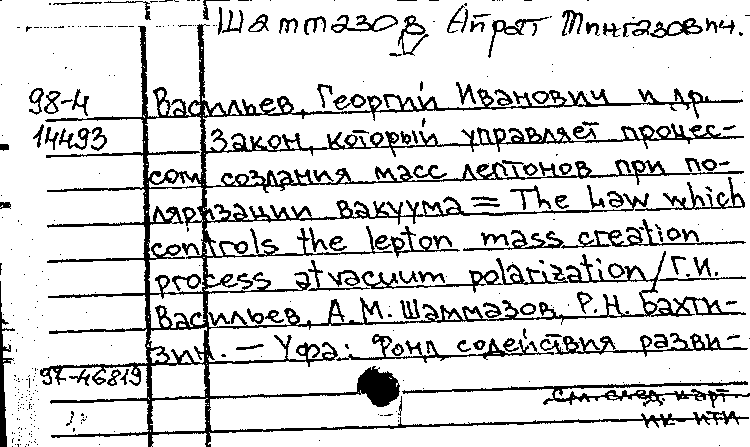 Шаммазов Айрат Мингазович.
98-4 Васильев, Георгий Иванович и др.
14493 Закон, который управляет процес-
сом создания масс лептонов при по-
ляризации вакуума = The Law which
controls the lepton mass creation
process at vacuum polarization / Г.И.
Васильев, А.М. Шаммазов, Р.Н. Бахти-
зин. — Уфа: Фонд содействия разви-
97-46819
см. след. карт.